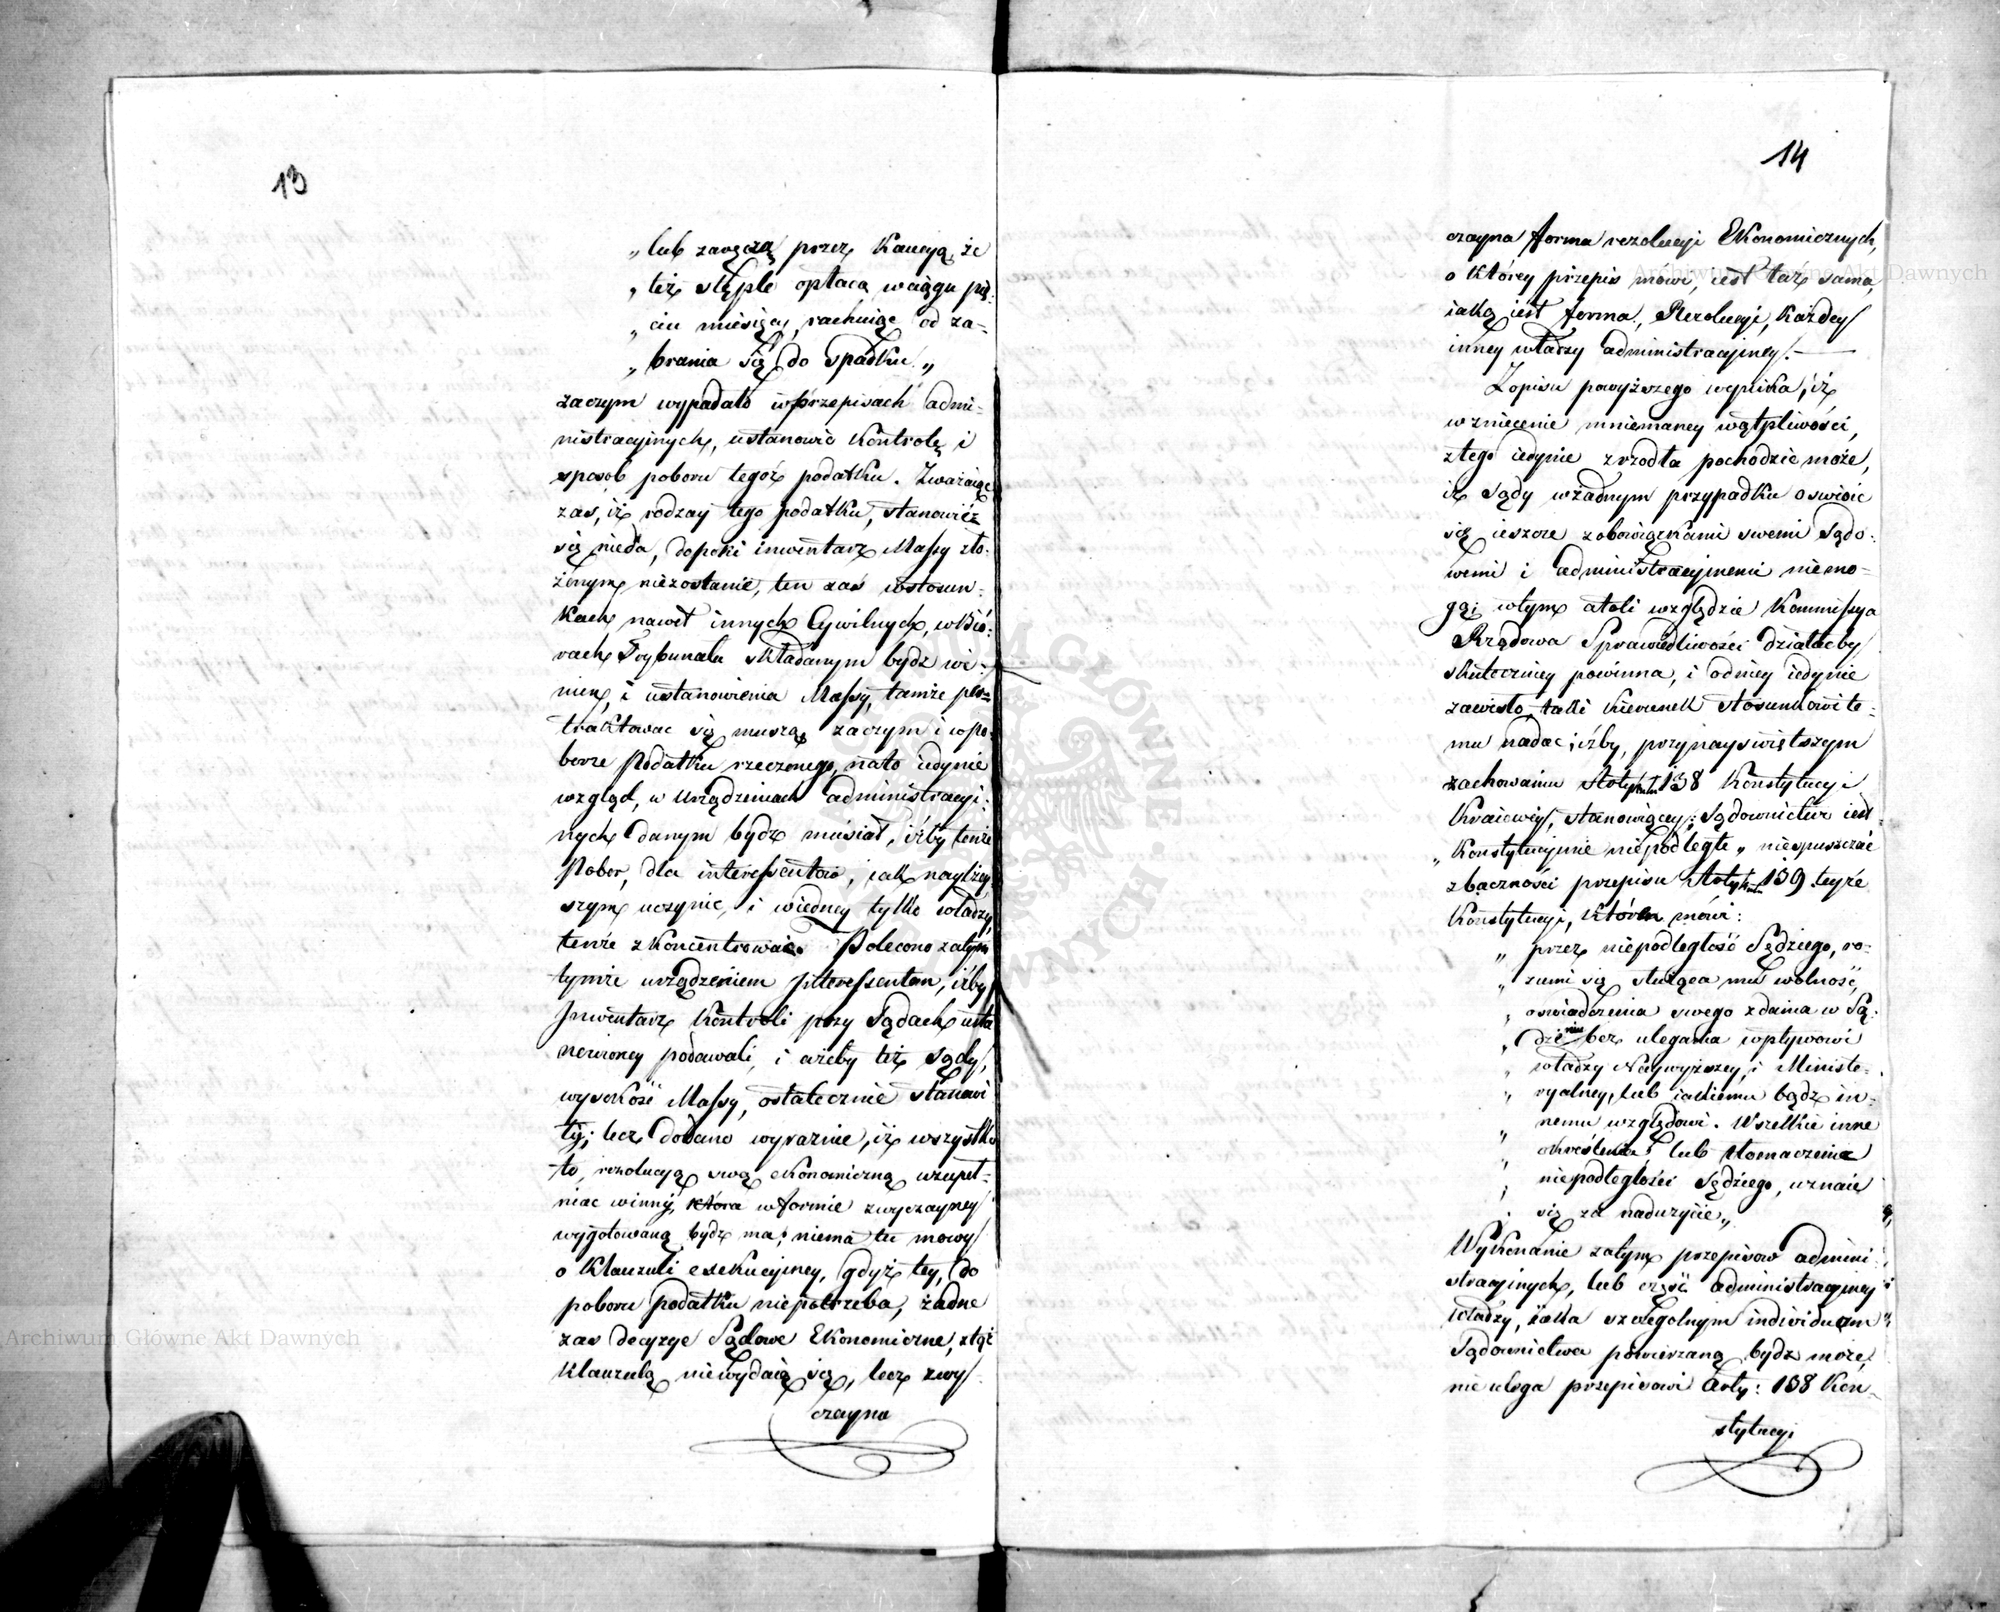 13
„ lub zaręczą przez Kaucyą, że
„ też stęple opłacą w ciągu pię-
„ ciu miesięcy, rachuiąc od za-
„ brania się do spadku „
zaczym wypadało w przepisach admi-
nistracyjnych, ustanowić Kontrolę i
sposob poboru tegoż podatku. Zważaiąc
zas, iż rodzay tego podatku, stanowić
się nieda, dopoki inwentarz Massy zło-
żonym niezostanie, ten zas wstosun-
kach nawet innych Cywilnych, w Bió-
rach Trybunału składanym bydz wi-
nien, i ustanowienia Massy, tamże per-
traktować się muszą, zaczym i wpo-
borze Podatku rzeczonego, nato iedynie
wzgląd, w Urządzeniach administracyi-
nych danym bydz musiał, iżby tenże
Pobor, dla interessentów, iak naylżey-
szym uczynić, i wiedney tylko władzy,
tenże zkoncentrować. Polecono zatym
tymże urządzeniem Interessentom, iżby
Inwentarz Kontroli przy Sądach usta
nowioney podawali, i ażeby też Sądy,
wysokość Massy, ostatecznie stanowi
ły; lecz dodano wyraznie, iż wszystko
to, rezolucyą swą ekonomiczną uzupeł-
niac winny, która w formie zwyczayney
wygotowaną bydz ma; niema tu mowy
o Klauzuli exekucyiney, gdyż tey, do
poboru podatku niepotrzeba, żadne
zas decyzye Sądowe Ekonomiczne, z tąż
Klauzulą niewydaią się, lecz zwy-
czayna
14
czayna forma rezolucyi Ekonomicznych,
o którey przepis mówi, iest taż sama,
iaką iest forma, Rezolucyi, każdey
inney władzy administracyiney. —
Z opisu powyższego wynika, iż
wzniecenie mniemaney wątpliwości,
z tego iedynie zrzodła pochodzić może,
iż Sądy w żadnym przypadku oswoić
się ieszcze z obowiązkami swemi Sądo-
wemi i administracyinemi niemo-
gą; w tym atoli względzie Kommissya
Rządowa Sprawiedliwości działacby
skuteczniey powinna, i odniey iedynie
zawisło, taki kierunek stosunkowi te-
mu nadać; iżby, przy nayswiętszym
zachowaniu Artykułu 138 Konstytucyi
Kraiowey, stanowiącey: Sądownictwo iest
„ Konstytucyinie niepodległe „ niespuszczać
z baczności przepisu Artykułu 139. teyże
Konstytucyi, który mówi:
„ przez niepodległość Sędziego, ro-
„ zumi się służąca mu wolność,
„ oswiadczenia swego zdania w Są-
„ dzeniu bez ulegania wpływowi
„ władzy Naywyższey, i Ministe-
„ ryalney, lub iakiemu bądz in-
„ nemu względowi. Wszelkie inne
„ okreslenie lub tłomaczenie
„ niepodległości Sędziego, uznaie
„ się za nadużycie „
Wykonanie zatym przepisow admini
stracyinych, lub część administracyiney
władzy, iaka szczegolnym individuom
Sądownictwa powierzaną bydz może,
nie ulega przepisowi Arty: 138 Kon-
stytucyi
Archiwum Główne Akt Dawnych
Archiwum Główne Akt Dawnych